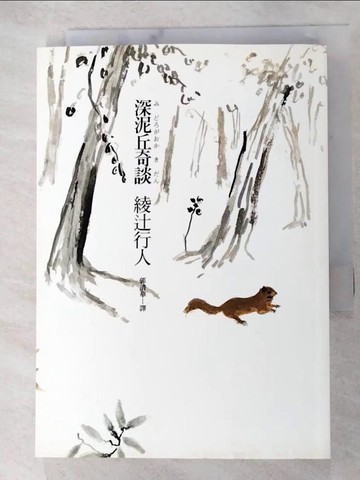 深泥丘奇談
みどろがおか きだん
綾辻行人
郭清華—譯